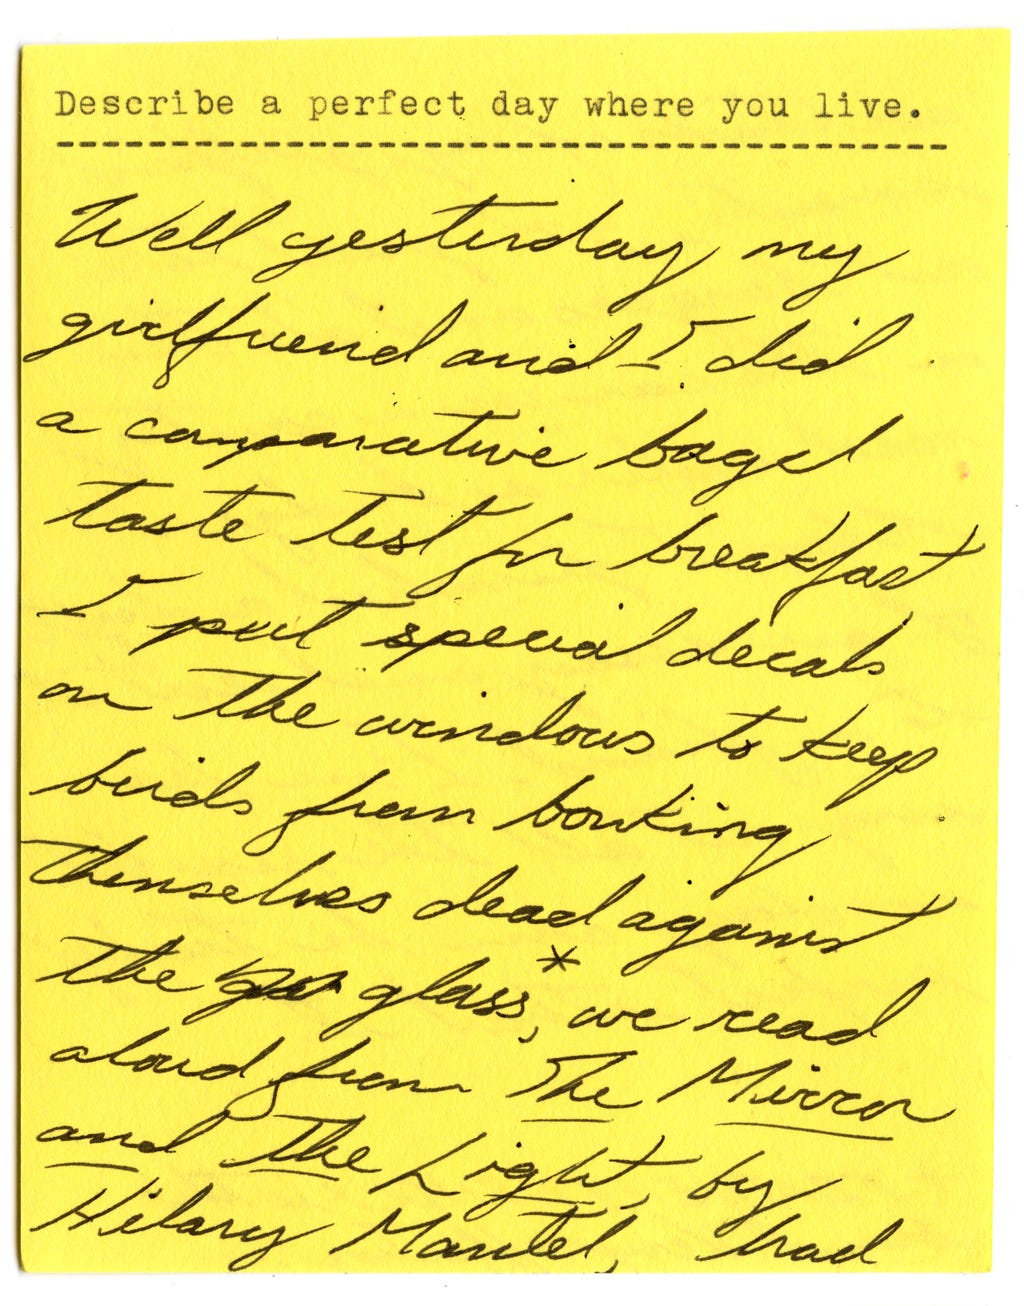 Describe a perfect day where you live.
Well yesterday my
girlfriend and I did
a comparative bagel
taste test for breakfast
I put special decals
on the windows to keep
birds from bonking
themselves dead against
the glass,* we read
aloud from The Mirror
and the Light, by
Hilary Mantel, had